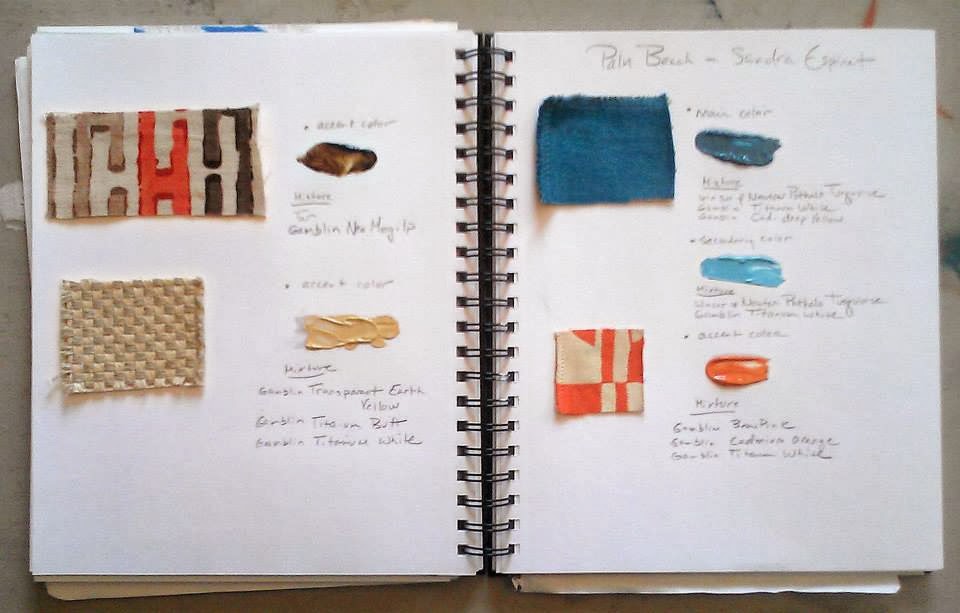 • accent color
Mixture
Gamblin Neo Megilp
• accent color
Mixture
Gamblin Transparent Earth
Yellow
Gamblin Titanium Buff
Gamblin Titanium White
Palm Beach - Sandra Espinet
• Main color
Mixture
Winsor & Newton Pthalo Turquoise
Gamblin Titanium White
Gamblin Cad. deep Yellow
• Secondary color
Mixture
Winsor & Newton Pthalo Turquoise
Gamblin Titanium White
• accent color
Mixture
Gamblin
Gamblin Cadmium Orange
Gamblin Titanium White